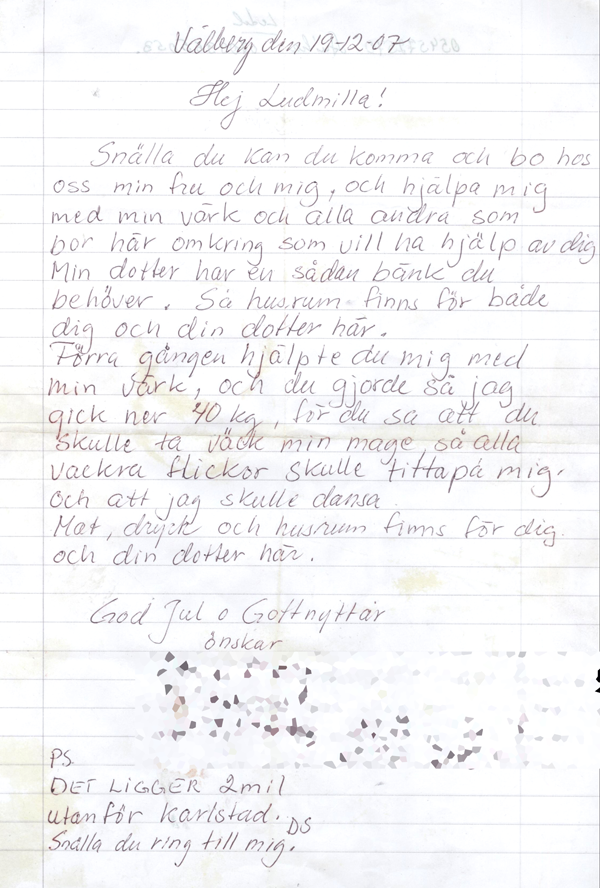 Vålberg den 19-12-07
Hej Ludmilla!
Snälla du kan du komma och bo hos
oss min fru och mig, och hjälpa mig
med min värk och alla andra som
bor här omkring som vill ha hjälp av dig
Min dotter har en sådan bänk du
behöver. Så husrum finns för både
dig och din dotter här.
Förra gången hjälpte du mig med
min värk, och du gjorde så jag
gick ner 40 kg, för du sa att du
skulle ta väck min mage, så alla
vackra flickor skulle titta på mig.
och att jag skulle dansa.
Mat, dryck och husrum finns för dig
och din dotter här.
God Jul o Gottnyttår
önskar
PS.
DET LIGGER 2mil
utanför Karlstad.
DS
Snälla du ring till mig.